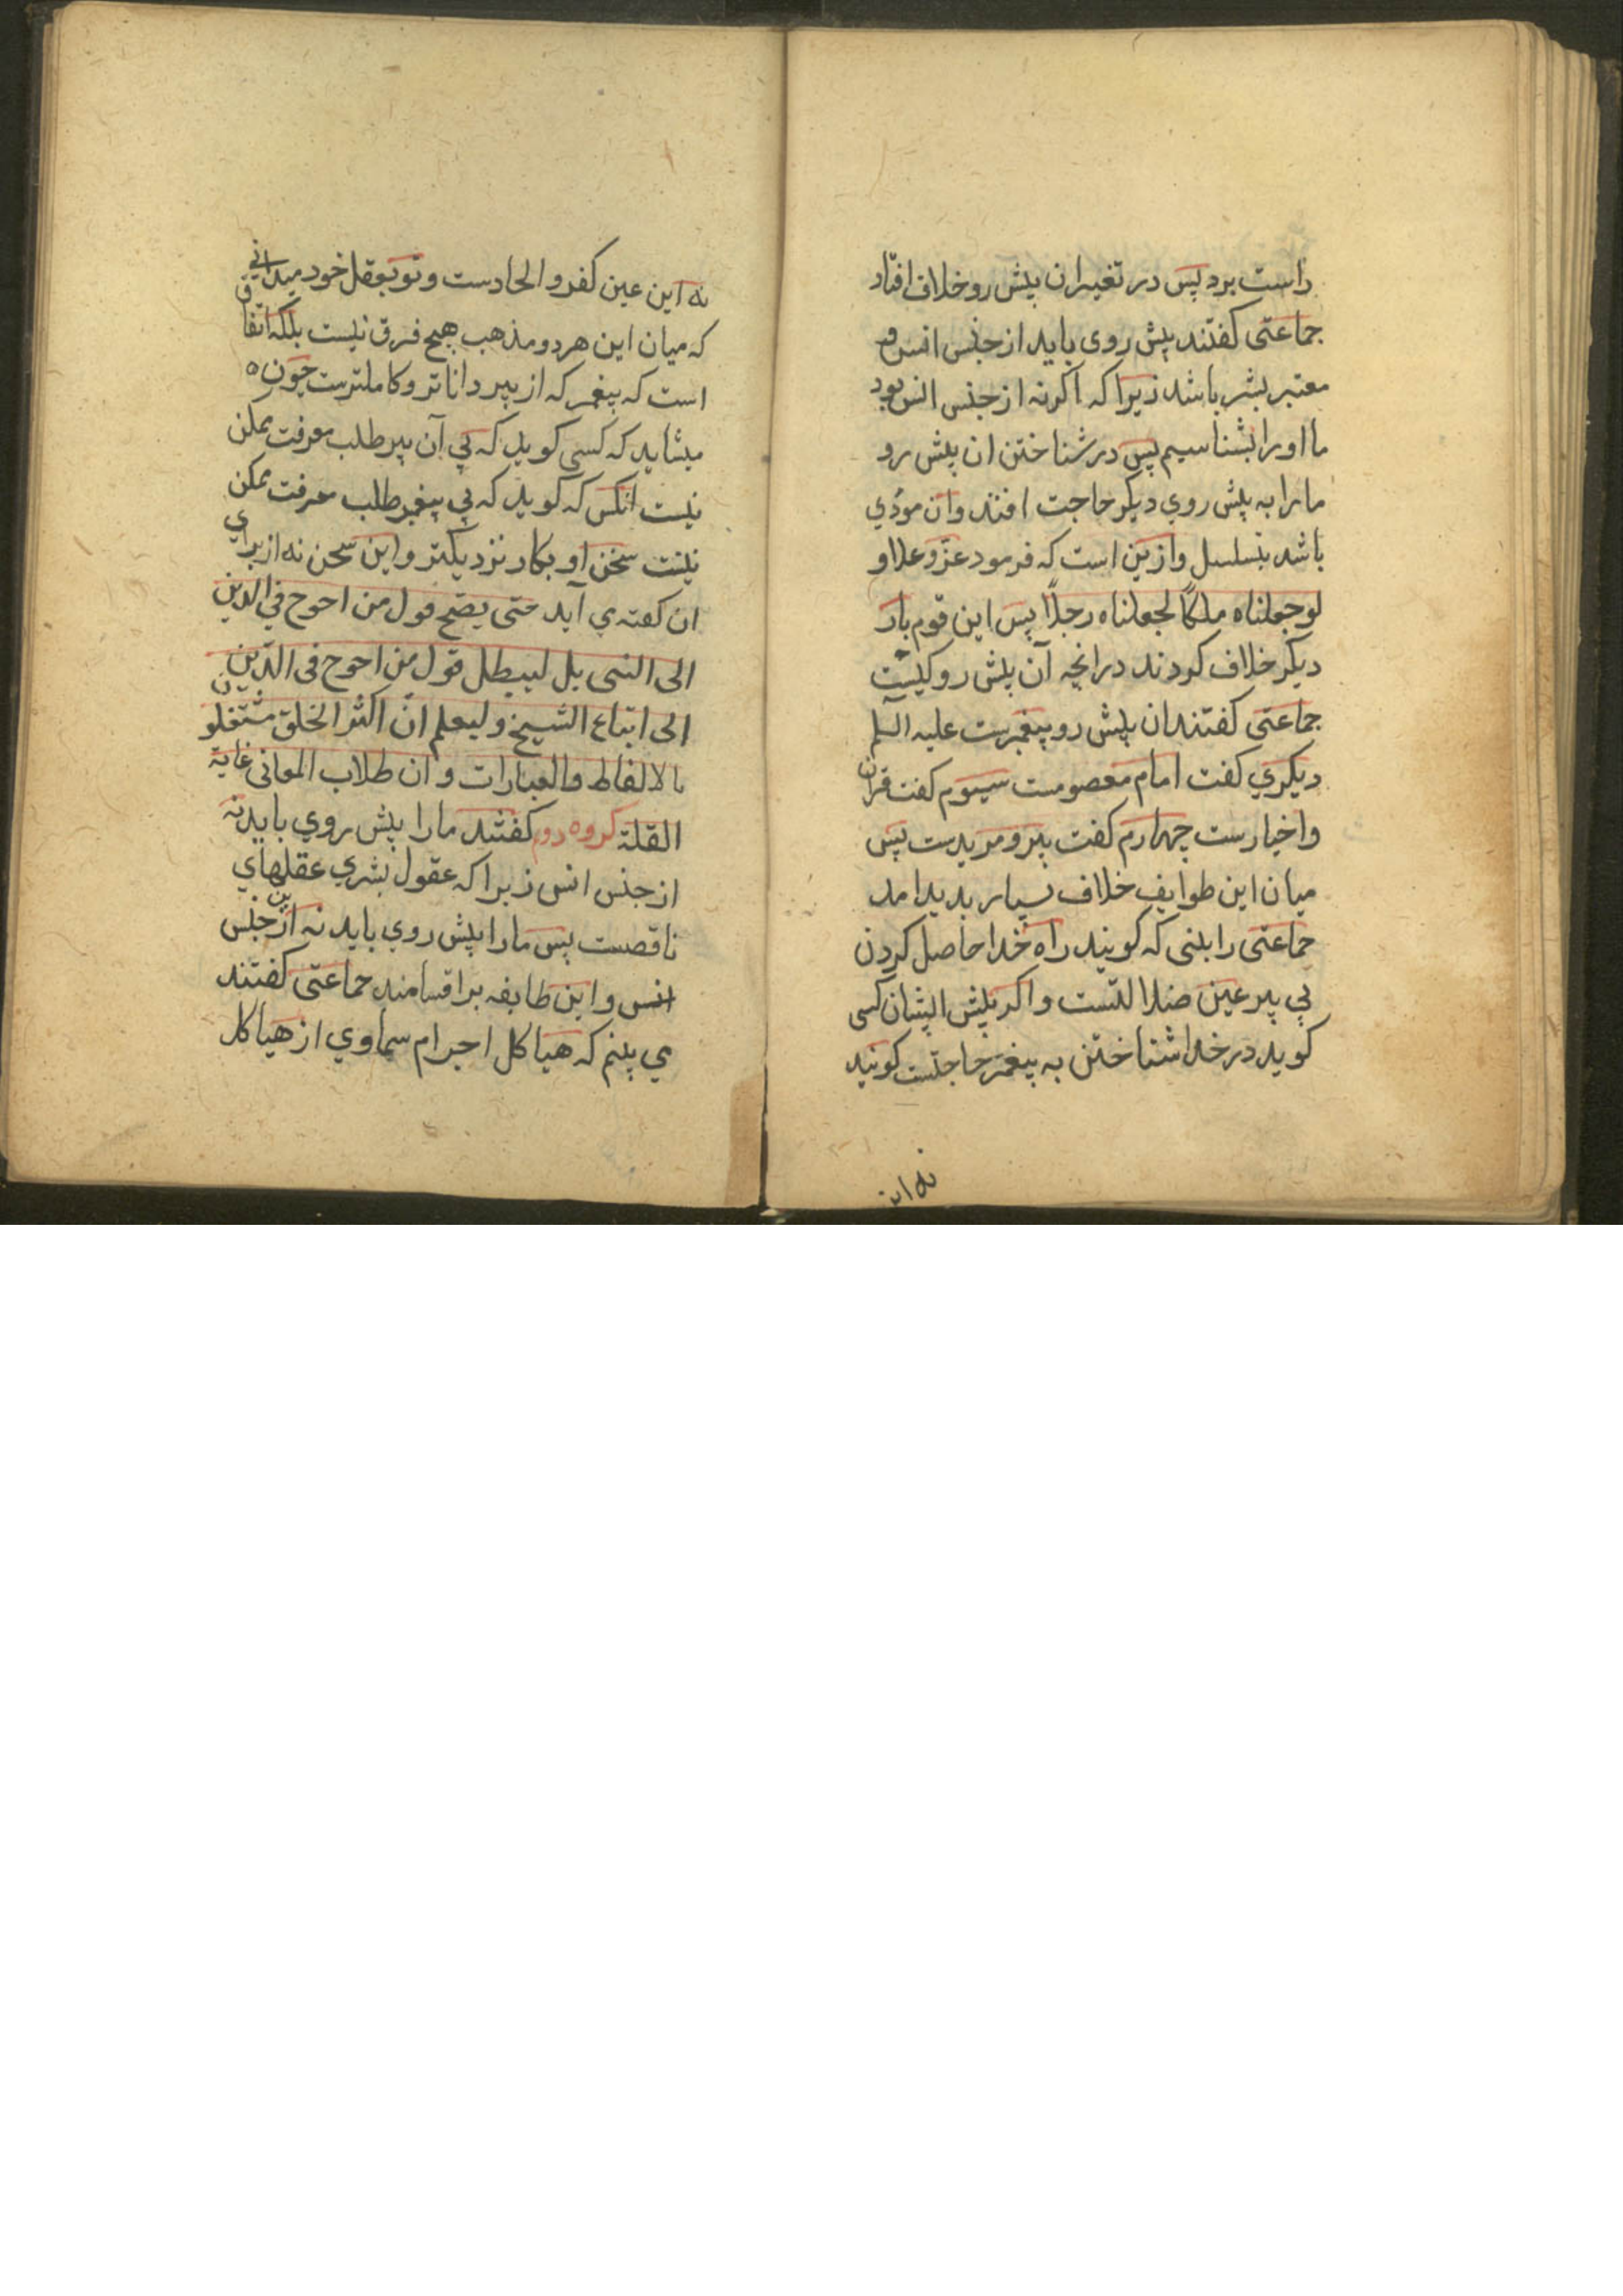 راست برد پس در تغییر ان پیش رو خلاف افتاد
جماعتی کفتند پیش روی باید از جنس انس و
معتبر بشر باشد زیرا که اکر نه از جنس انس بود
ما او را بشناسیم پس در شناختن ان پیش رو
ما را به پیش روي دیکر حاجت افتد وان مودي
باشد بتسلسل وازین است که فرمود عزّ و علا و
لو جعلناه ملکًا لجعلناه رجلًا پس این قوم بار
دیکر خلاف کردند در انچه آن پیش رو کیست
جماعتی کفتند ان پیش رو پیغمبرست علیه السلم
دیکري کفت امام معصومست سیوم کفت قران
واخبارست چهارم کفت پیر و مریدست پس
میان این طوایف خلاف بسیار بدید امد
جماعتی را بینی که کویند راه خدا حاصل کردن
بي پیر عین ضلالتست واکر پیش ایشان کسی
کوید در خدا شناختن به پیغمبر حاجتست کویند
نه این
نه این عین کفر والحادست و تو بعقل خود میداني
که میان این هر دو مذهب هیچ فرق نیست بلکه اتفاق
است که پیغمبر که از پیر داناتر وکاملترست چون
میشاید که کسی کوید که بي آن پیر طلب معرفت ممکن
نیست انکس که کوید که بي پیغمبر طلب معرفت ممکن
نیست سخن او بکار نزدیکتر واین سخن نه از براي
ان کفته ي آید حتی یصح قول من احوج في الدین
الی النبی بل لیبطل قول من احوج فی الدّین
الی اتباع الشیخ ولیعلم انّ اکثر الخلق مشتغلون
بالالفاظ والعبارات وان طلاب المعانی غایة
القلة کروه دوم کفتند ما را پیش روي باید نه
از جنس انس زیرا که عقول بشري عقلهاي
ناقصست پس ما را پیش روي باید نه از جنس
انس واین طایفه بر اقسامند جماعتی کفتند
مي بینم که هیاکل اجرام سماوي از هیاکل